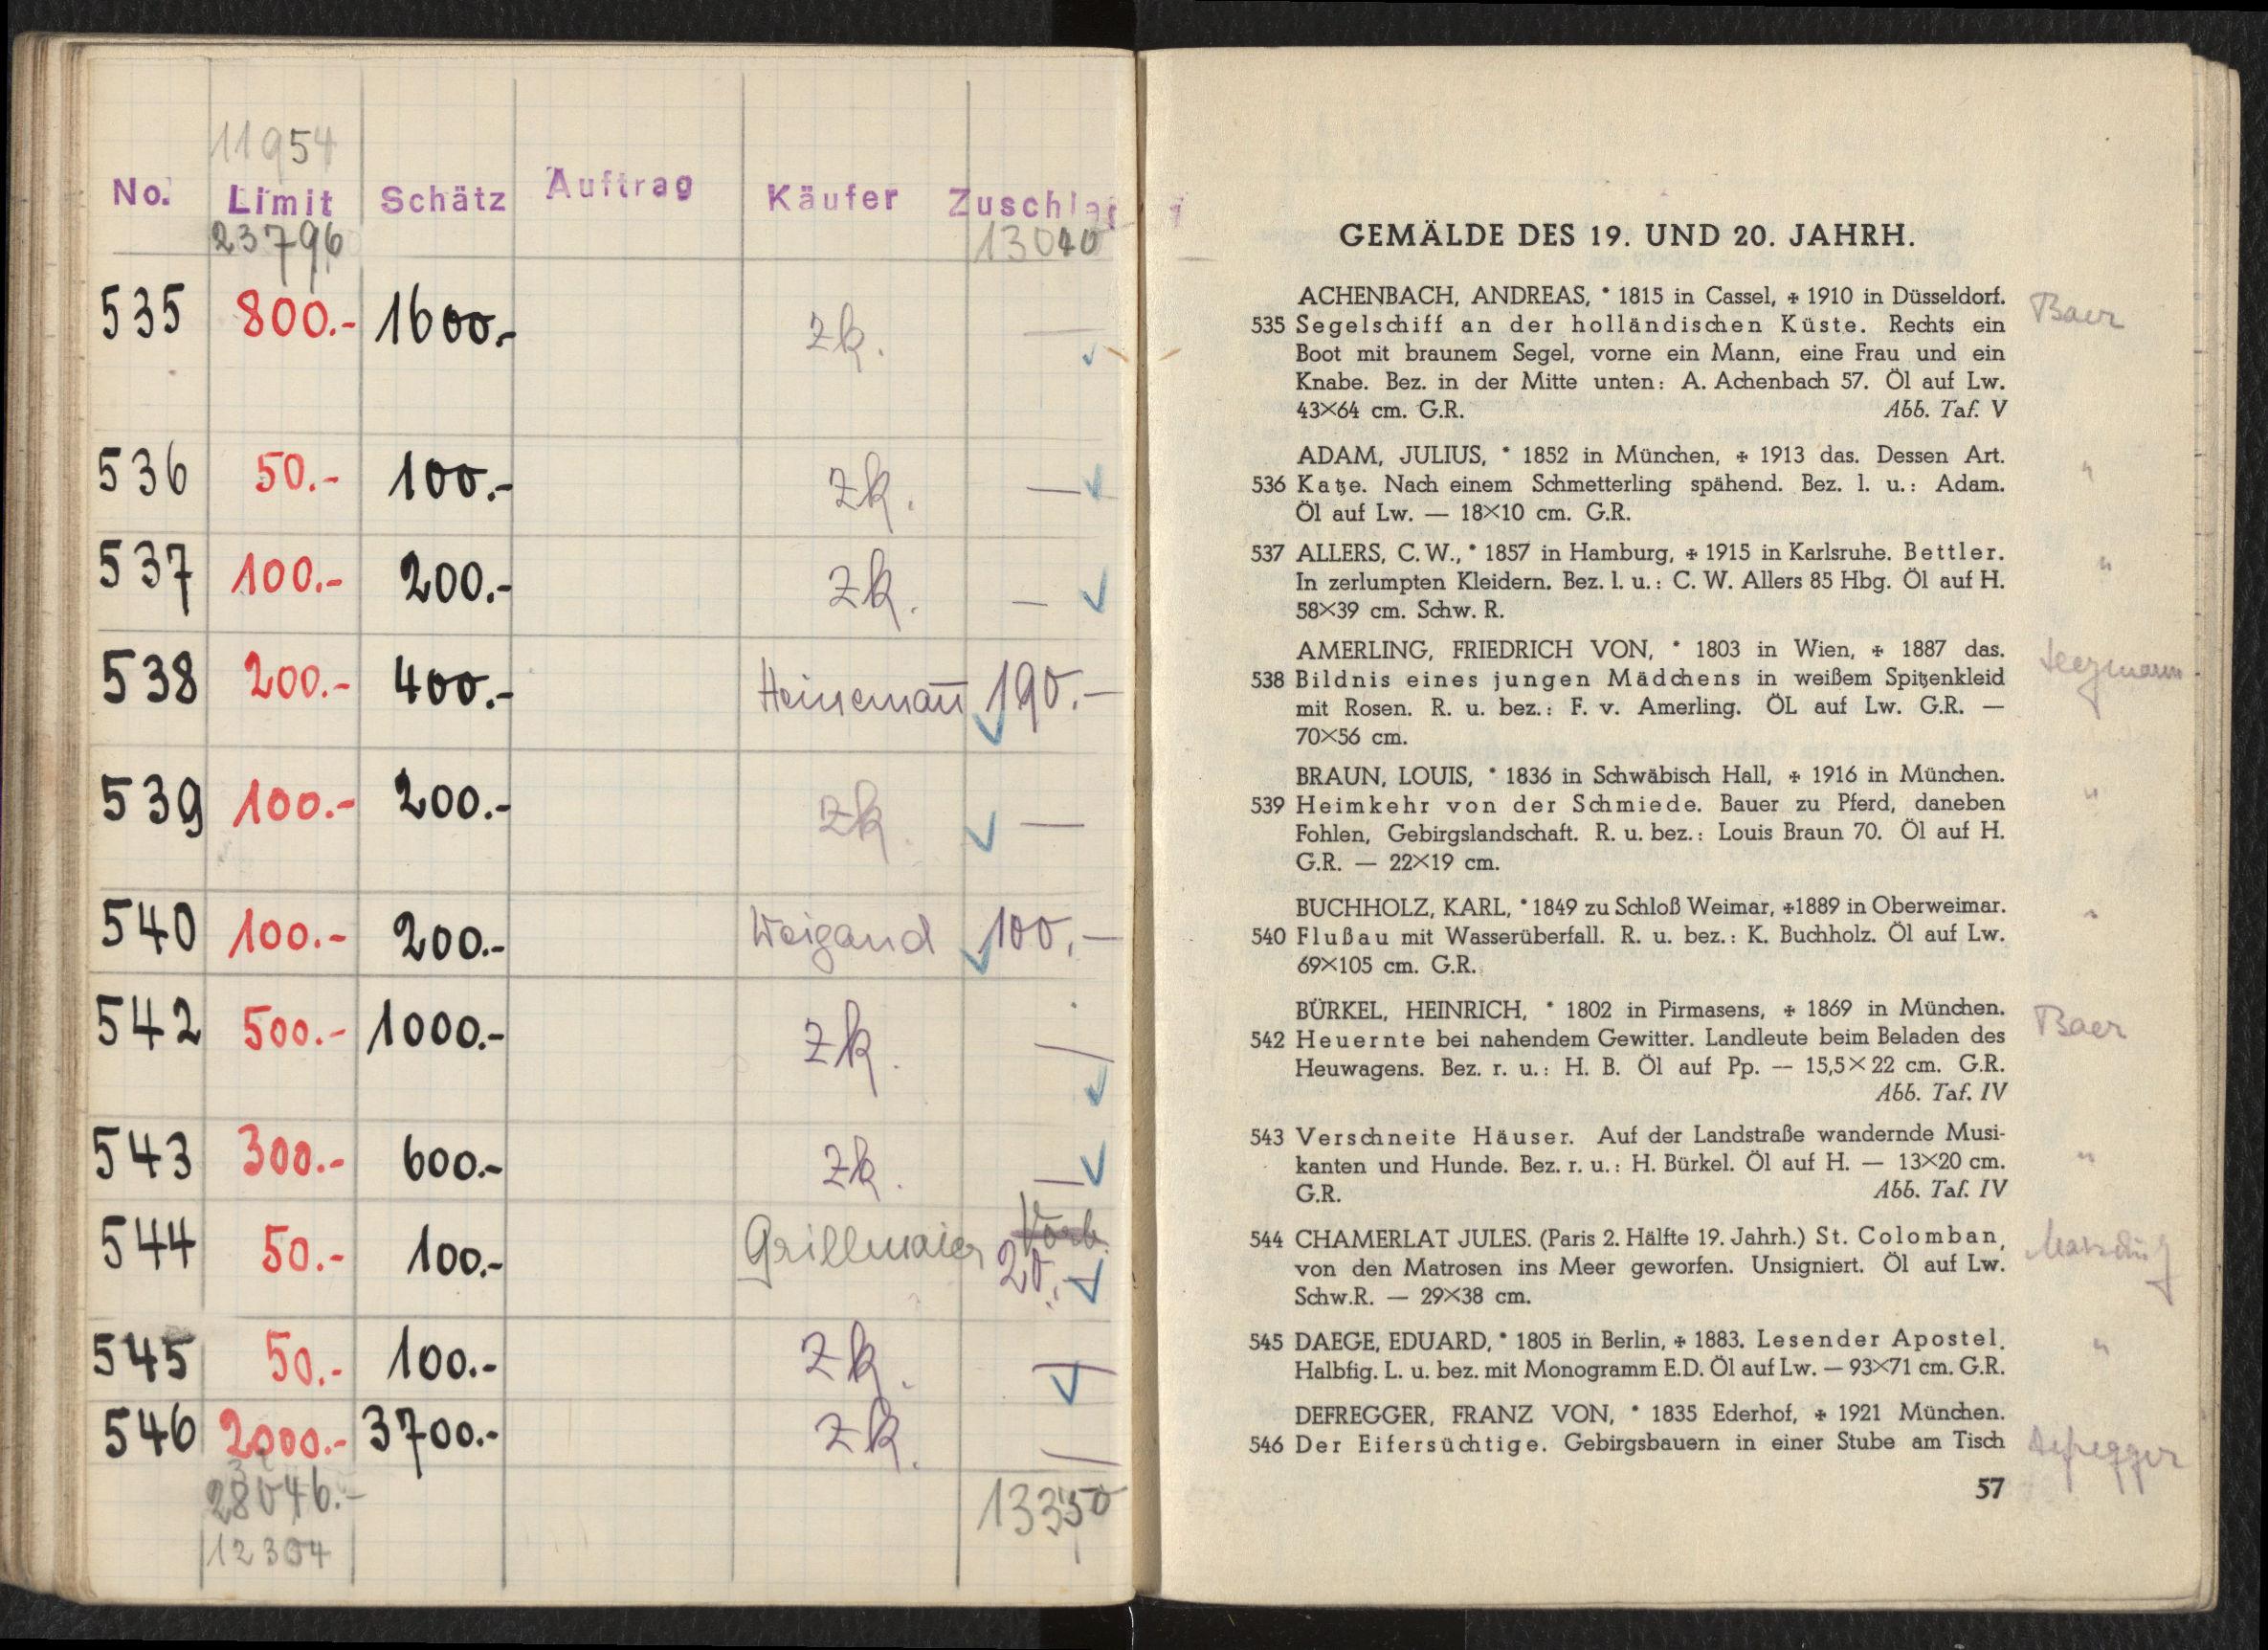 11954
No. Limit Schätz Auftrag Käufer Zuschlag
23796 13040
535 800.- 1600.- zk. —
536 50.- 100.- zk. —
537 100.- 200.- zk. —
538 200.- 400.- Heinemann 190.—
539 100.- 200.- zk. —
540 100.- 200.- Weigand 100.—
542 500.- 1000.- zk. —
543 300.- 600.- zk. —
Vorb.
544 50.- 100.- Grillmaier 20.-
545 50.- 100.- zk. —
546 2000.- 3700.- zk. —
28046.- 13350
12304
GEMÄLDE DES 19. UND 20. JAHRH.
ACHENBACH, ANDREAS, * 1815 in Cassel, ✠ 1910 in Düsseldorf. Baer
535 Segelschiff an der holländischen Küste. Rechts ein
Boot mit braunem Segel, vorne ein Mann, eine Frau und ein
Knabe. Bez. in der Mitte unten: A. Achenbach 57. Öl auf Lw.
43×64 cm. G.R. Abb. Taf. V
ADAM, JULIUS, * 1852 in München, ✠ 1913 das. Dessen Art. "
536 Katze. Nach einem Schmetterling spähend. Bez. l. u.: Adam.
Öl auf Lw. — 18×10 cm. G.R.
537 ALLERS, C. W., * 1857 in Hamburg, ✠ 1915 in Karlsruhe. Bettler. "
In zerlumpten Kleidern. Bez. l. u.: C. W. Allers 85 Hbg. Öl auf H.
58×39 cm. Schw. R.
AMERLING, FRIEDRICH VON, * 1803 in Wien, ✠ 1887 das.
538 Bildnis eines jungen Mädchens in weißem Spitzenkleid
mit Rosen. R. u. bez.: F. v. Amerling. ÖL auf Lw. G.R. —
70×56 cm.
BRAUN, LOUIS, * 1836 in Schwäbisch Hall, ✠ 1916 in München. "
539 Heimkehr von der Schmiede. Bauer zu Pferd, daneben
Fohlen, Gebirgslandschaft. R. u. bez.: Louis Braun 70. Öl auf H.
G.R. — 22×19 cm.
BUCHHOLZ, KARL, * 1849 zu Schloß Weimar, ✠1889 in Oberweimar. "
540 Flußau mit Wasserüberfall. R. u. bez.: K. Buchholz. Öl auf Lw.
69×105 cm. G.R.
BÜRKEL, HEINRICH, * 1802 in Pirmasens, ✠ 1869 in München. Baer
542 Heuernte bei nahendem Gewitter. Landleute beim Beladen des
Heuwagens. Bez. r. u.: H. B. Öl auf Pp. — 15,5×22 cm. G.R.
Abb. Taf. IV
543 Verschneite Häuser. Auf der Landstraße wandernde Musi-
kanten und Hunde. Bez. r. u.: H. Bürkel. Öl auf H. — 13×20 cm. "
G.R. Abb. Taf. IV
544 CHAMERLAT JULES. (Paris 2. Hälfte 19. Jahrh.) St. Colomban,
von den Matrosen ins Meer geworfen. Unsigniert. Öl auf Lw.
Schw.R. — 29×38 cm.
545 DAEGE, EDUARD, * 1805 in Berlin, ✠ 1883. Lesender Apostel. "
Halbfig. L. u. bez. mit Monogramm E.D. Öl auf Lw. — 93×71 cm. G.R.
DEFREGGER, FRANZ VON, * 1835 Ederhof, ✠ 1921 München.
546 Der Eifersüchtige. Gebirgsbauern in einer Stube am Tisch Defregger
57